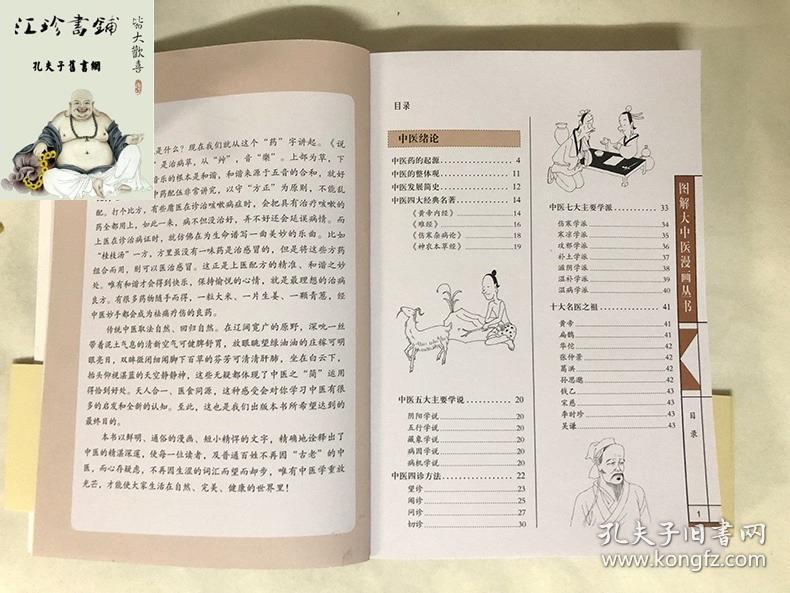 江珍書舖
皆大歡喜
孔夫子舊書網
是什么？现在我们就从这个“药”字讲起。《说
”是治病草，从“艸”，音“樂”。上部为草，下
音乐的根本是和谐，和谐来源于五音的合和，就好
中药配伍非常讲究，以守“方正”为原则，不能乱
配。打个比方，有些庸医在诊治咳嗽病症时，会把具有治疗咳嗽的
药全都用上，如此一来，病不但没治好，弄不好还会延误病情。而
上医在诊治病证时，就仿佛在为生命谱写一曲美妙的乐曲。比如
“桂枝汤”一方，方里虽没有一味药是治感冒的，但是将这些方药
组合而用，则可以医治感冒。这正是上医配方的精准、和谐之妙
处。唯有和谐才会得到快乐，保持愉悦的心情，就是最理想的治病
良方。有很多药物随手而得，一粒大米、一片生姜、一颗青葱，经
中医妙手都会成为祛痛疗伤的良药。
传统中医取法自然、回归自然。在辽阔宽广的原野，深吮一丝
带着泥土气息的清新空气可健脾舒胃，放眼眺望绿油油的庄稼可明
眼亮目，双眸微闭细闻脚下百草的芬芳可清清肝肺，坐在白云下，
抬头仰视湛蓝的天空静静神，这些无疑都体现了中医之“简”运用
得恰到好处。天人合一、医食同源，这种感受会对你学习中医有很
多的启发和全新的认知。至此，这也是我们出版本书所希望达到的
最终目的。
本书以鲜明、通俗的漫画、短小精悍的文字，精确地诠释出了
中医的精湛深邃，使每一位读者，及普通百姓不再因“古老”的中
医，而心存疑虑，不再因生涩的词汇而望而却步，唯有中医学重放
光芒，才能使大家生活在自然、完美、健康的世界里！
目录
中医绪论
中医药的起源 4
中医的整体观 11
中医发展简史 12
中医四大经典名著 14
《黄帝内经》 14
《难经》 16
《伤寒杂病论》 18
《神农本草经》 19
中医五大主要学说 20
阴阳学说 20
五行学说 20
藏象学说 20
病因学说 20
病机学说 20
中医四诊方法 22
望诊 23
闻诊 25
问诊 27
切诊 30
中医七大主要学派 33
伤寒学派 34
寒凉学派 35
攻邪学派 36
补土学派 37
滋阴学派 38
温补学派 39
温病学派 40
十大名医之祖 41
黄帝 41
扁鹊 41
华佗 42
张仲景 42
葛洪 42
孙思邈 42
钱乙 42
宋慈 43
李时珍 43
吴谦 43
图解大中医漫画丛书
目录
1
孔夫子旧书网
www.kongfz.com